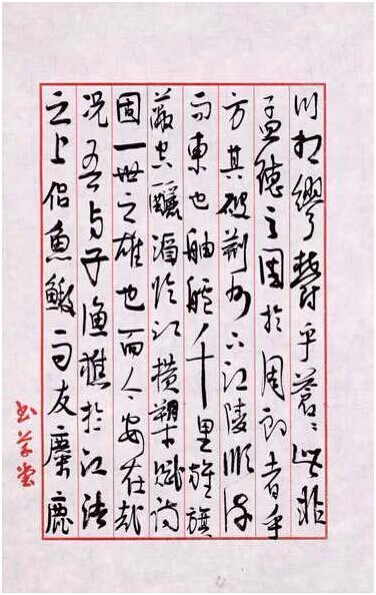 川相繆鬱乎蒼〻此非
孟德之困於周郎者乎
方其破荆州下江陵順流
而東也舳艫千里旌旗
蔽空釃酒臨江横槊賦詩
固一世之雄也而今安在哉
况吾与子漁樵於江渚
之上侣魚鰕而友麋鹿